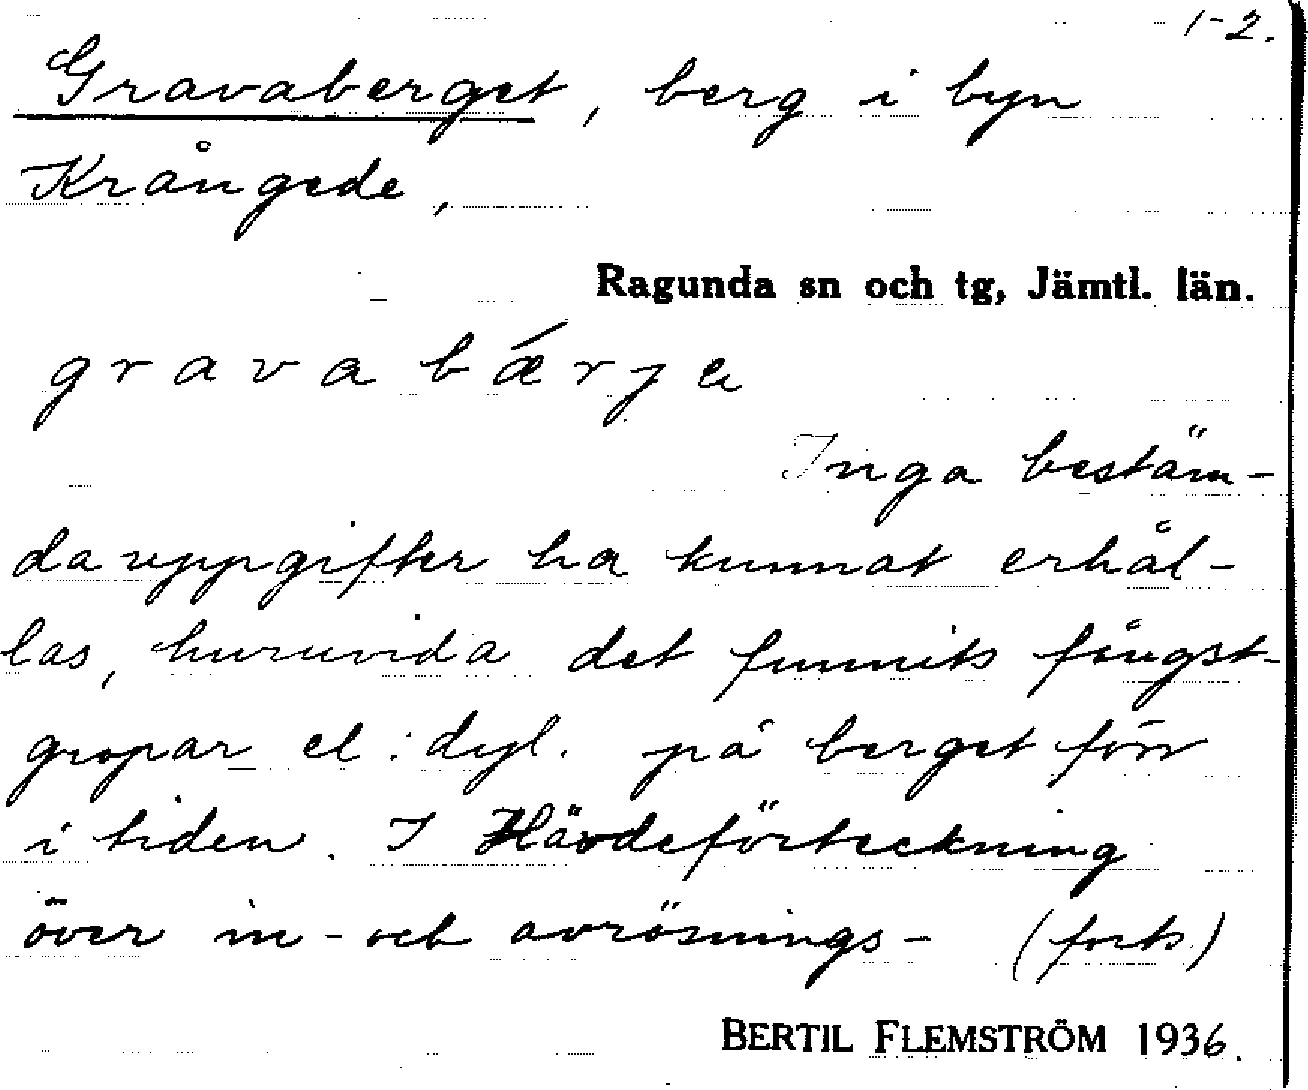 1-2.
Gravaberget, berg i byn
Krångede,
Ragunda sn och tg, Jämtl. län.
grava bǽrjɛ
Inga bestäm-
da uppgifter ha kunnat erhål-
las, huruvida det funnits fångst-
gropar el. dyl. på berget förr
i tiden. I Hävdeförteckning
över in- och avrösnings- (forts.)
BERTIL FLEMSTRÖM 1936.